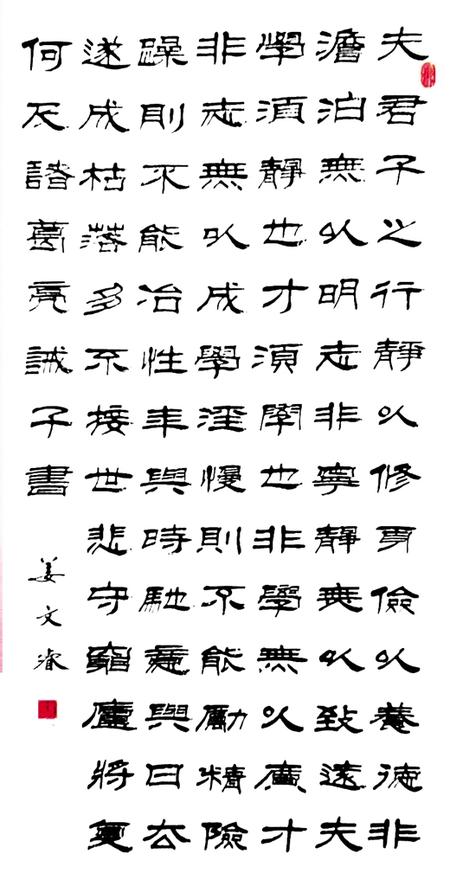 夫君子之行靜以修身儉以養德非
澹泊無以明志非寧靜無以致遠夫
學須靜也才須學也非學無以廣才
非志無以成學淫慢則不能勵精險
躁則不能冶性年與時馳意與日去
遂成枯落多不接世悲守窮廬將复
何及諸葛亮誡子書
姜文